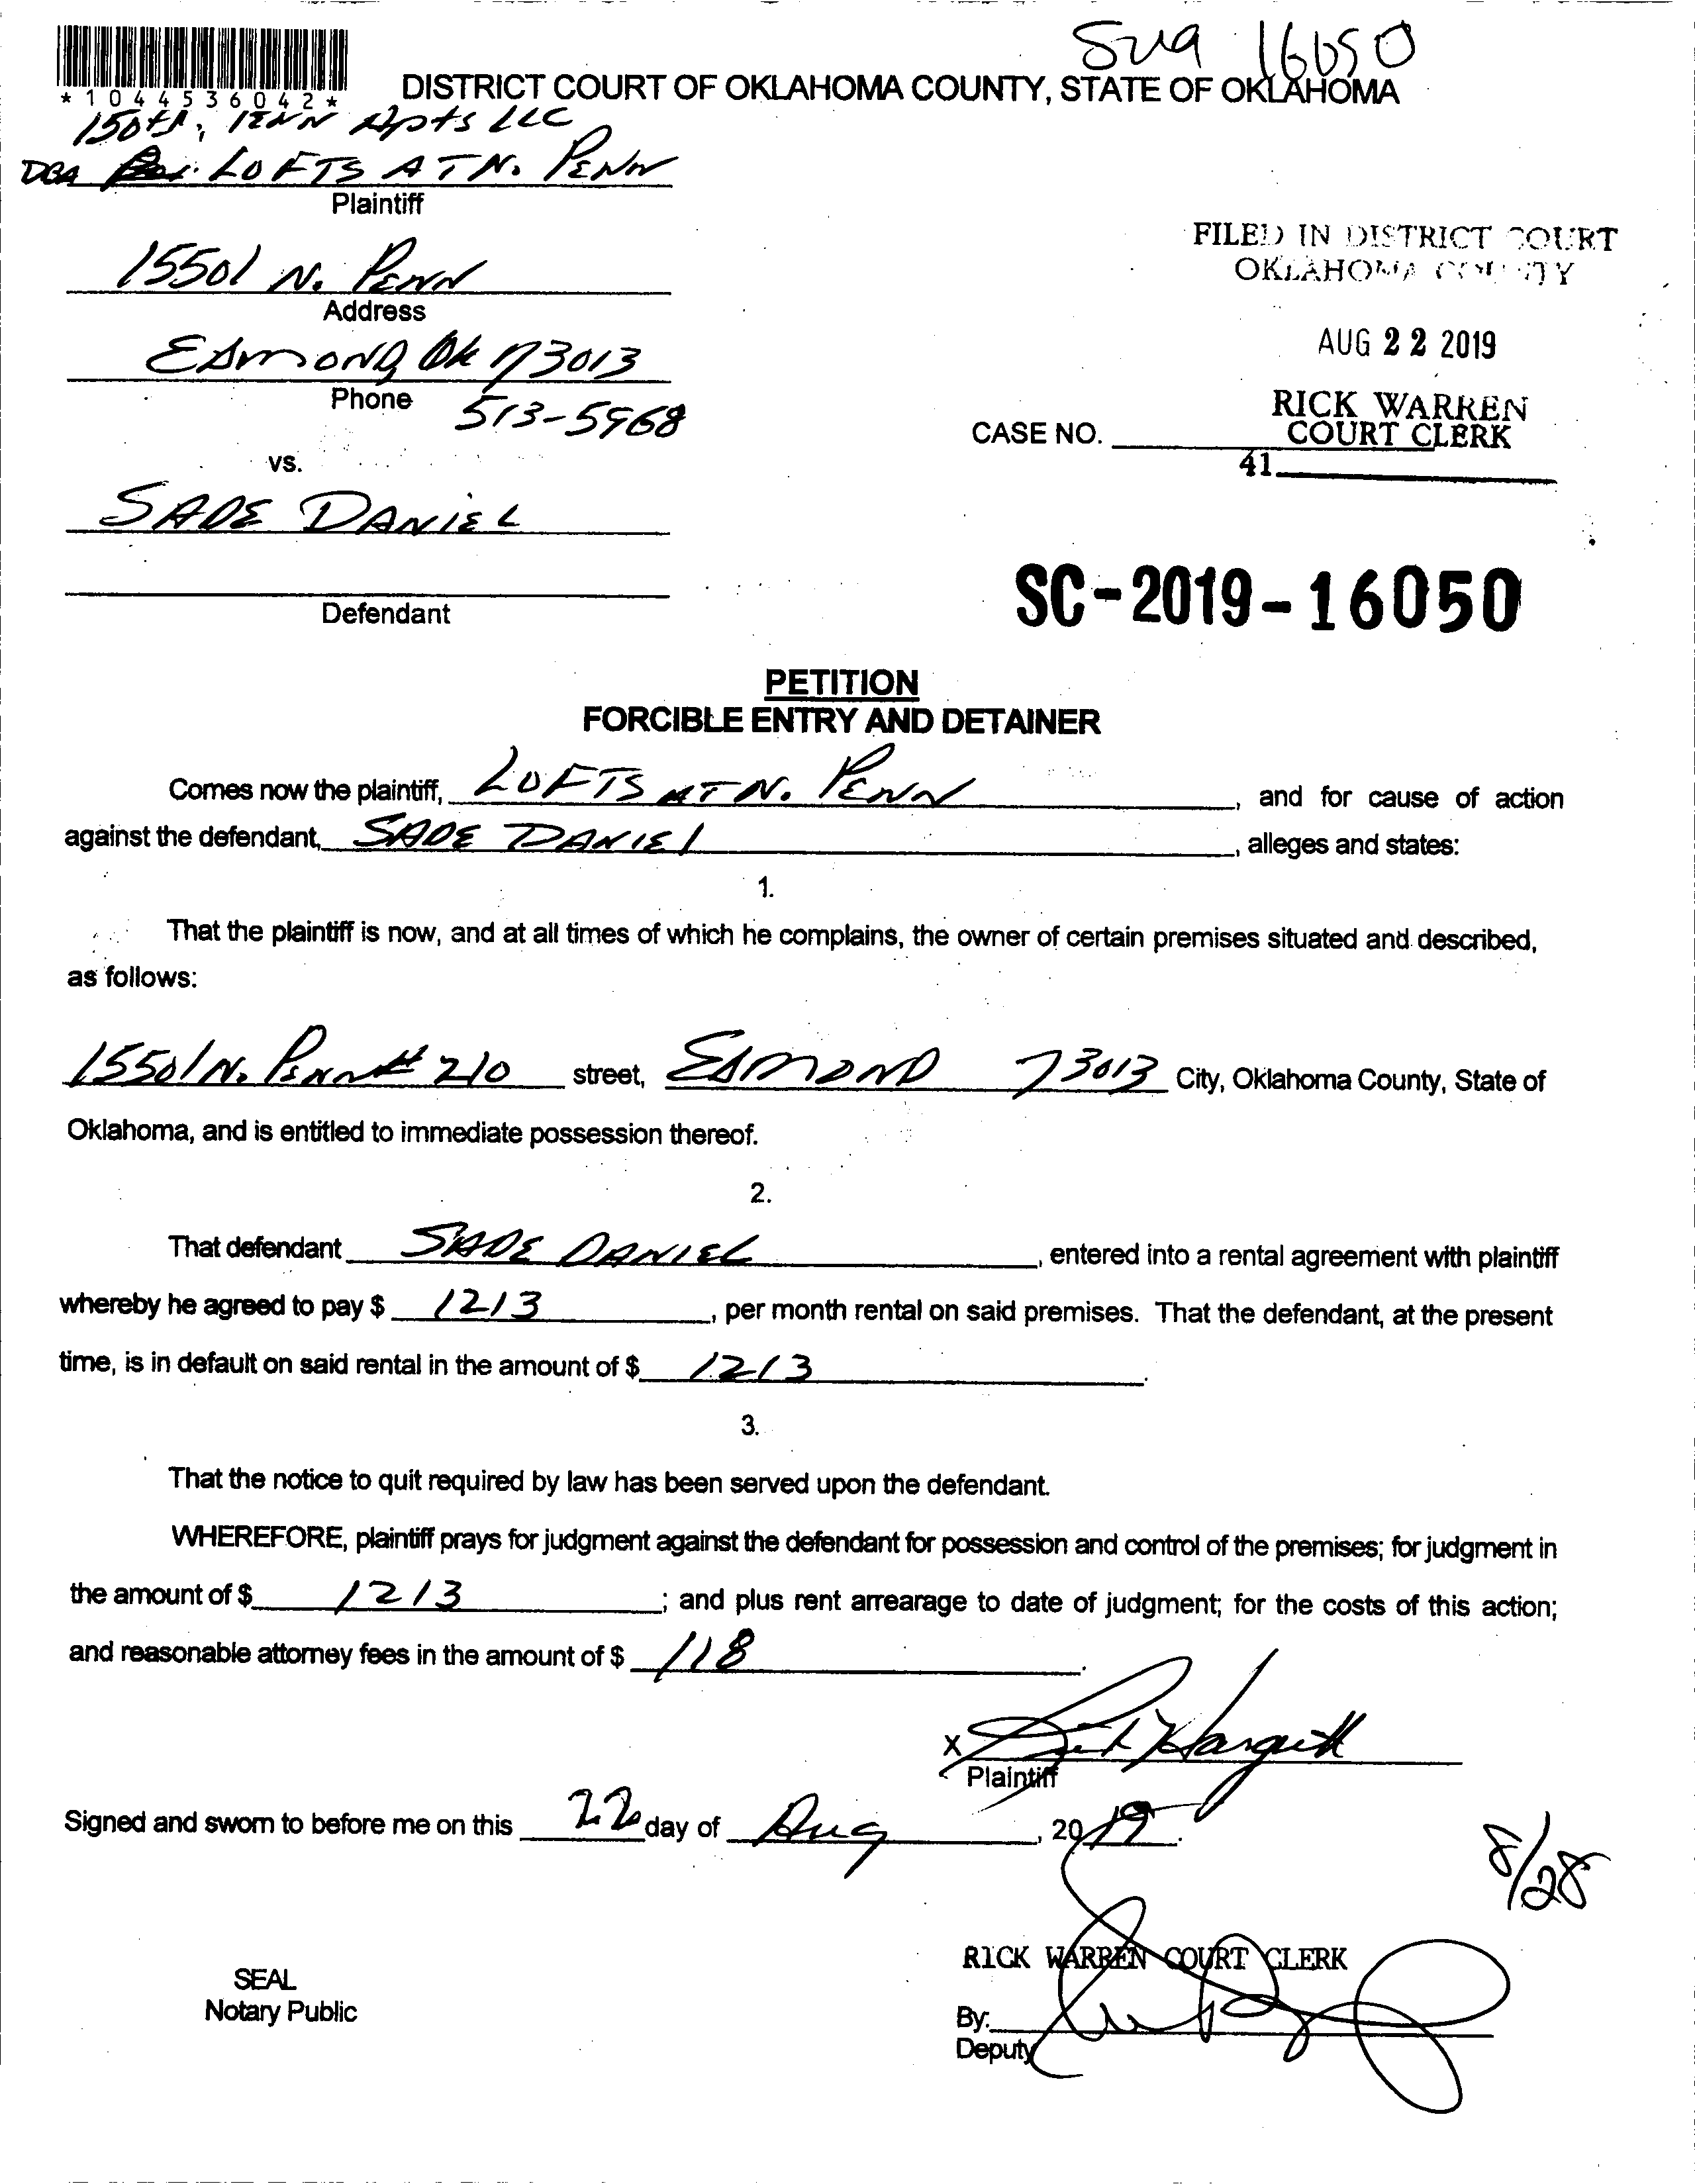 Sug 16050
*1044536042*
DISTRICT COURT OF OKLAHOMA COUNTY, STATE OF OKLAHOMA
150th, PENN Apts LLC
DBA LOFTS AT N. PENN
Plaintiff
15501 N. PENN
Address
EDMOND, Ok 73013
Phone 513-5968
vs.
SADE DANIEL
Defendant
FILED IN DISTRICT COURT
OKLAHOMA COUNTY
AUG 22 2019
RICK WARREN
CASE NO. COURT CLERK
41
SC-2019-16050
PETITION
FORCIBLE ENTRY AND DETAINER
Comes now the plaintiff, LOFTS AT N. PENN, and for cause of action
against the defendant, SADE DANIEL, alleges and states:
1.
That the plaintiff is now, and at all times of which he complains, the owner of certain premises situated and described,
as follows:
15501 N. PENN # 210 street, EDMOND 73013 City, Oklahoma County, State of
Oklahoma, and is entitled to immediate possession thereof.
2.
That defendant SADE DANIEL, entered into a rental agreement with plaintiff
whereby he agreed to pay $ 1213, per month rental on said premises. That the defendant, at the present
time, is in default on said rental in the amount of $ 1213.
3.
That the notice to quit required by law has been served upon the defendant.
WHEREFORE, plaintiff prays for judgment against the defendant for possession and control of the premises; for judgment in
the amount of $ 1213; and plus rent arrearage to date of judgment; for the costs of this action;
and reasonable attorney fees in the amount of $ 118.
X
Plaintiff
Signed and sworn to before me on this 22 day of Aug, 2019.
8/28
RICK WARREN COURT CLERK
SEAL
Notary Public
By:
Deputy